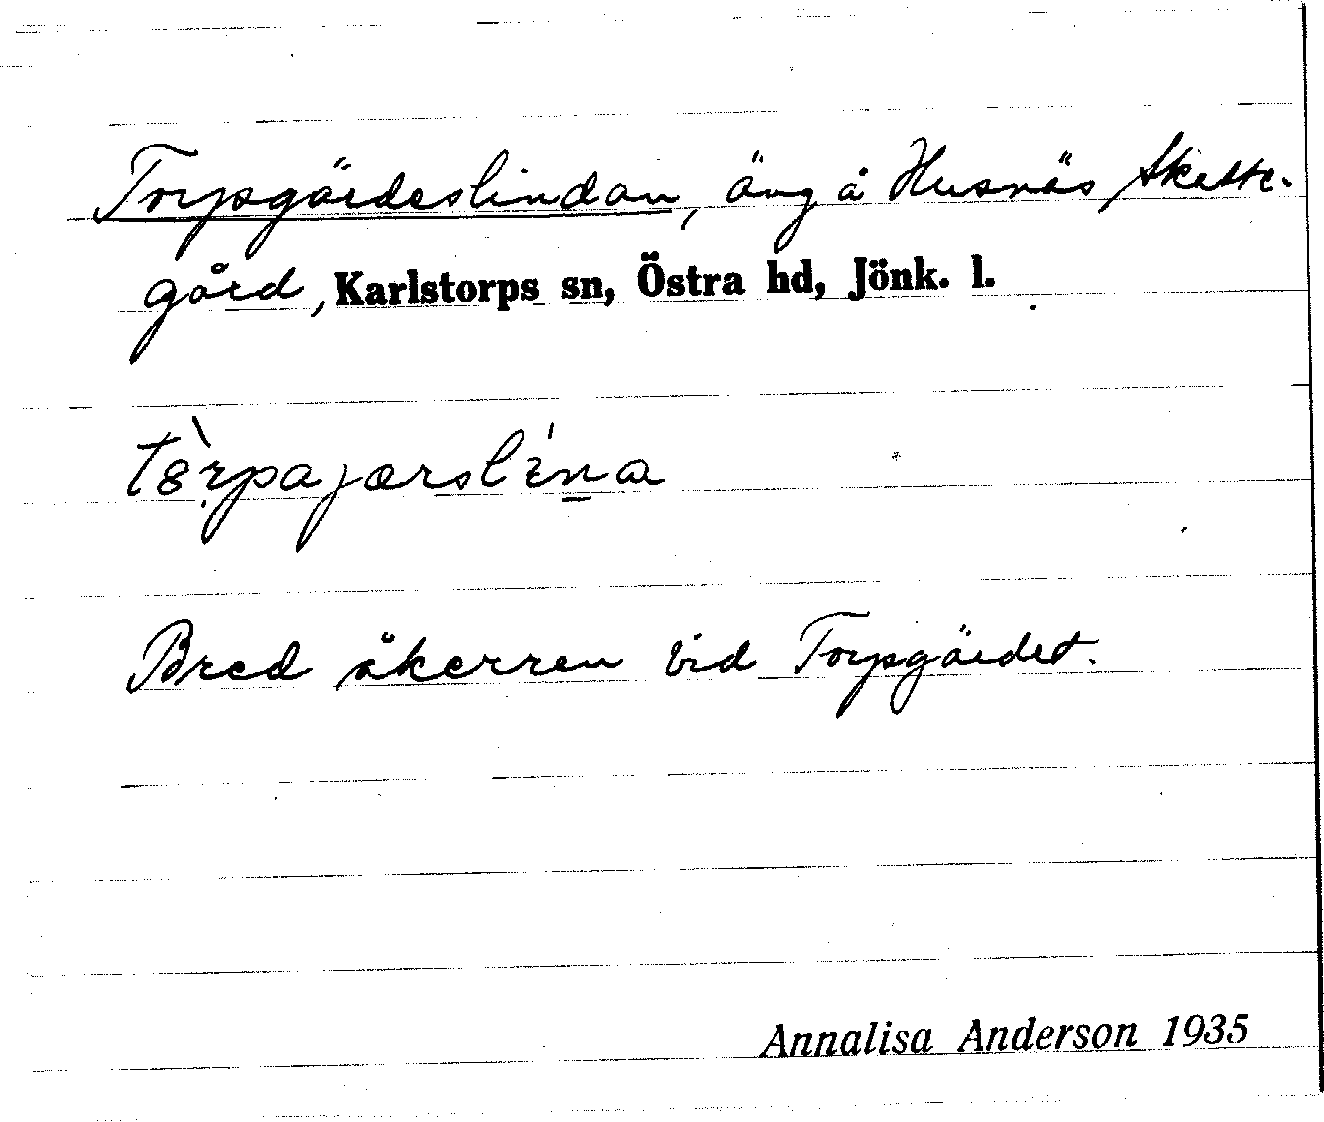 Torpgärdeslindan, äng å Husnäs Skatte-
gård, Karlstorps sn, Östra hd, Jönk. l.
Bred åkerren vid Torpgärdet.
Annalisa Anderson 1935